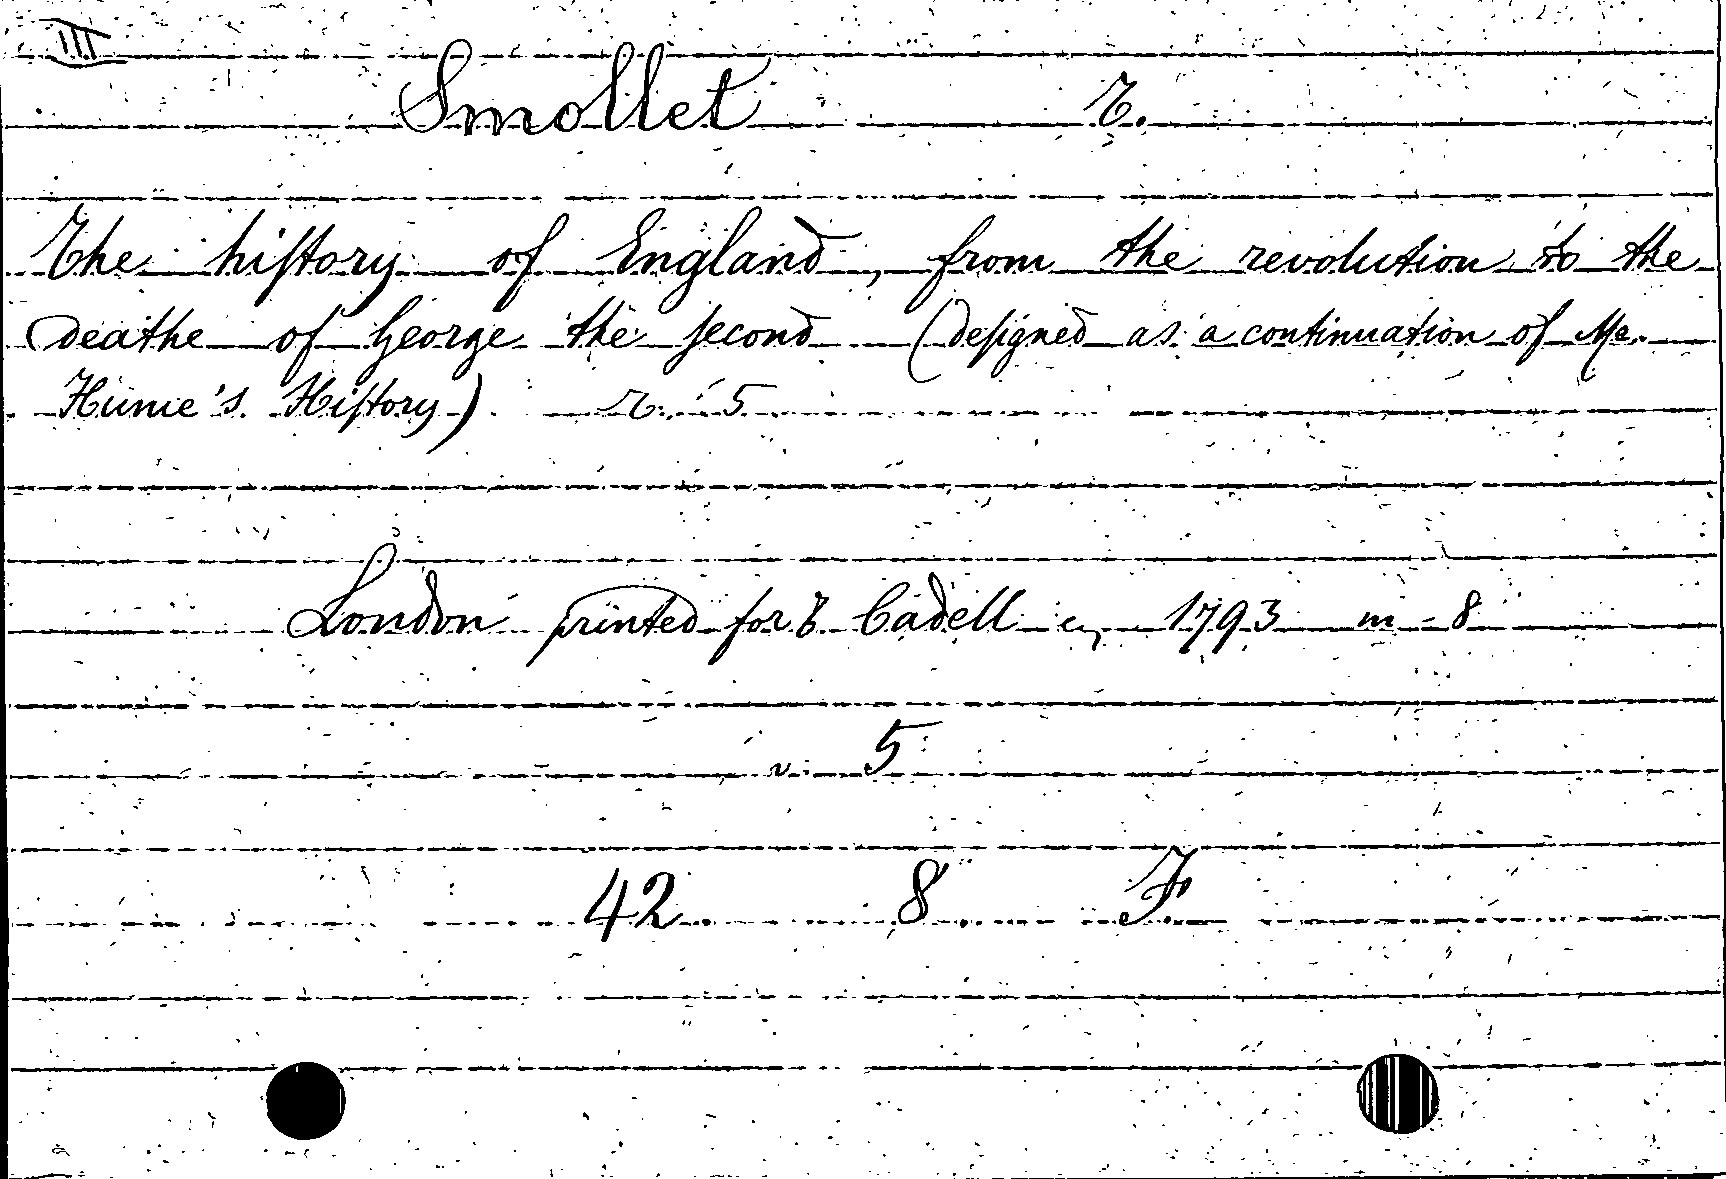 III
Smollet T.
The hiſtory of England, from the revolution to the
deathe of George the ſecond (deſigned as a continuation of Mr.
Hume's Hiſtory) T. 5
London printed for T. Cadell 1793 in - 8
v. 5
42 8 F.